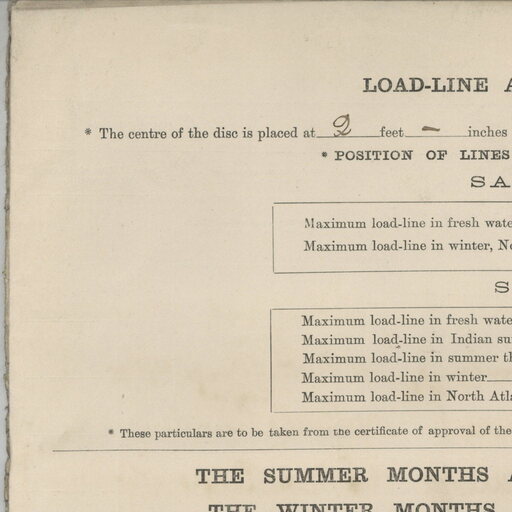 LOAD-LINE A
* The centre of the disc is placed at 2 feet - inches
* POSITION OF LINES
SA
Maximum load-line in fresh wate
Maximum load-line in winter, No
S
Maximum load-line in fresh wate
Maximum load-line in Indian su
Maximum load-line in summer th
Maximum load-line in winter
Maximum load-line in North Atla
* These particulars are to be taken from the certificate of approval of the
THE SUMMER MONTHS A
THE WINTER MONTHS